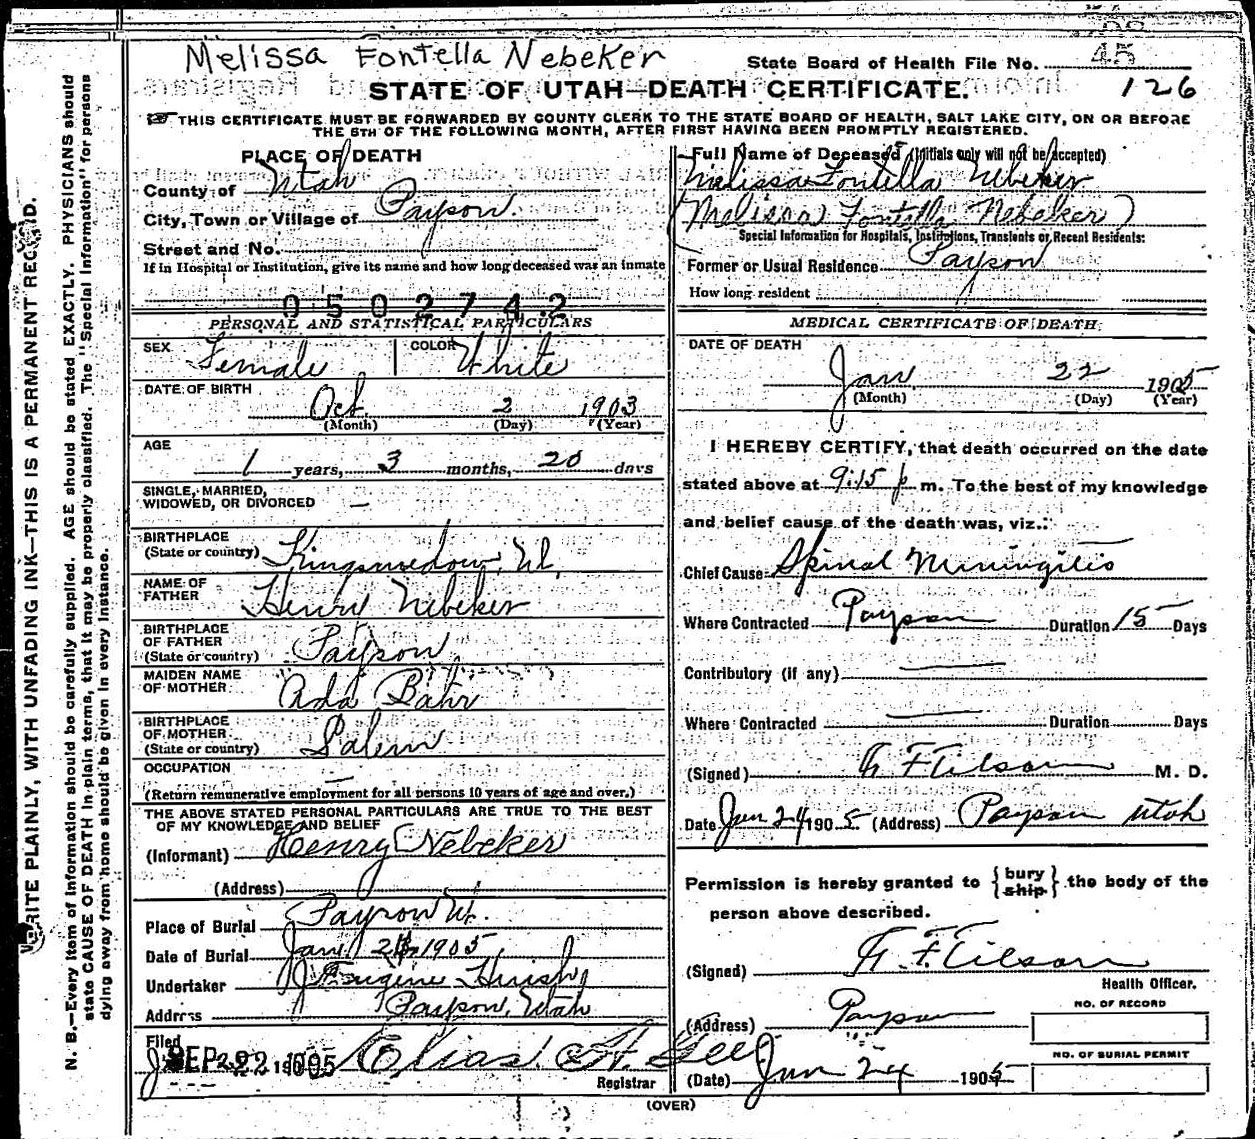 Melissa Fontella Nebeker
State Board of Health File No. 45
126
STATE OF UTAH—DEATH CERTIFICATE.
THIS CERTIFICATE MUST BE FORWARDED BY COUNTY CLERK TO THE STATE BOARD OF HEALTH, SALT LAKE CITY, ON OR BEFORE
THE 5TH OF THE FOLLOWING MONTH, AFTER FIRST HAVING BEEN PROMPTLY REGISTERED.
WRITE PLAINLY, WITH UNFADING INK—THIS IS A PERMANENT RECORD.
N. B.—Every item of information should be carefully supplied. AGE should be stated EXACTLY. PHYSICIANS should
state CAUSE OF DEATH in plain terms, that it may be properly classified. The "Special Information" for persons
dying away from home should be given in every instance.
PLACE OF DEATH
County of Utah
City, Town or Village of Payson.
Street and No.
If in Hospital or Institution, give its name and how long deceased was an inmate
0502742
PERSONAL AND STATISTICAL PARTICULARS
SEX Female COLOR White
DATE OF BIRTH
Oct. 2 1903
(Month) (Day) (Year)
AGE
1 years, 3 months, 20 days
SINGLE, MARRIED,
WIDOWED, OR DIVORCED —
BIRTHPLACE
(State or country) Kingsmedow, Ut.
NAME OF
FATHER Henry Nebeker
BIRTHPLACE
OF FATHER
(State or country) Payson
MAIDEN NAME
OF MOTHER Ada Bahr
BIRTHPLACE
OF MOTHER
(State or country) Salem
OCCUPATION —
(Return remunerative employment for all persons 10 years of age and over.)
THE ABOVE STATED PERSONAL PARTICULARS ARE TRUE TO THE BEST
OF MY KNOWLEDGE AND BELIEF
(Informant) Henry Nebeker
(Address)
Place of Burial Payson Ut.
Date of Burial Jan 1905
Undertaker J Eugine Huish
Address Payson, Utah
Filed
SEP 22 1905 Elias H. Gee
Registrar
Full Name of Deceased (Initials only will not be accepted)
Melissa Fontella Nebeker
(Melissa Fontella Nebeker)
Special Information for Hospitals, Institutions, Transients or Recent Residents:
Former or Usual Residence Payson
How long resident
MEDICAL CERTIFICATE OF DEATH
DATE OF DEATH
Jan. 22 1905
(Month) (Day) (Year)
I HEREBY CERTIFY, that death occurred on the date
stated above at 9:15 p m. To the best of my knowledge
and belief cause of the death was, viz.:
Chief Cause Spinal Miningitis
Where Contracted Payson Duration 15 Days
Contributory (if any) —
Where Contracted — Duration Days
(Signed) M. D.
Date Jan 24 1905 (Address) Payson Utah
Permission is hereby granted to {bury ship} the body of the
person above described.
(Signed)
Health Officer.
NO. OF RECORD
(Address) Payson
NO. OF BURIAL PERMIT
(Date) Jan 24 1905
(OVER)